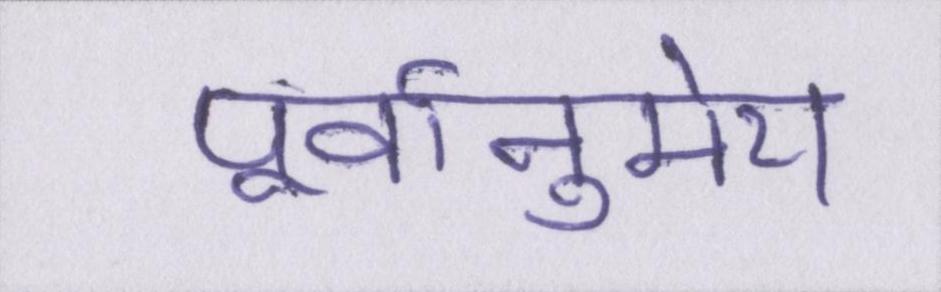 पूर्वानुमेय